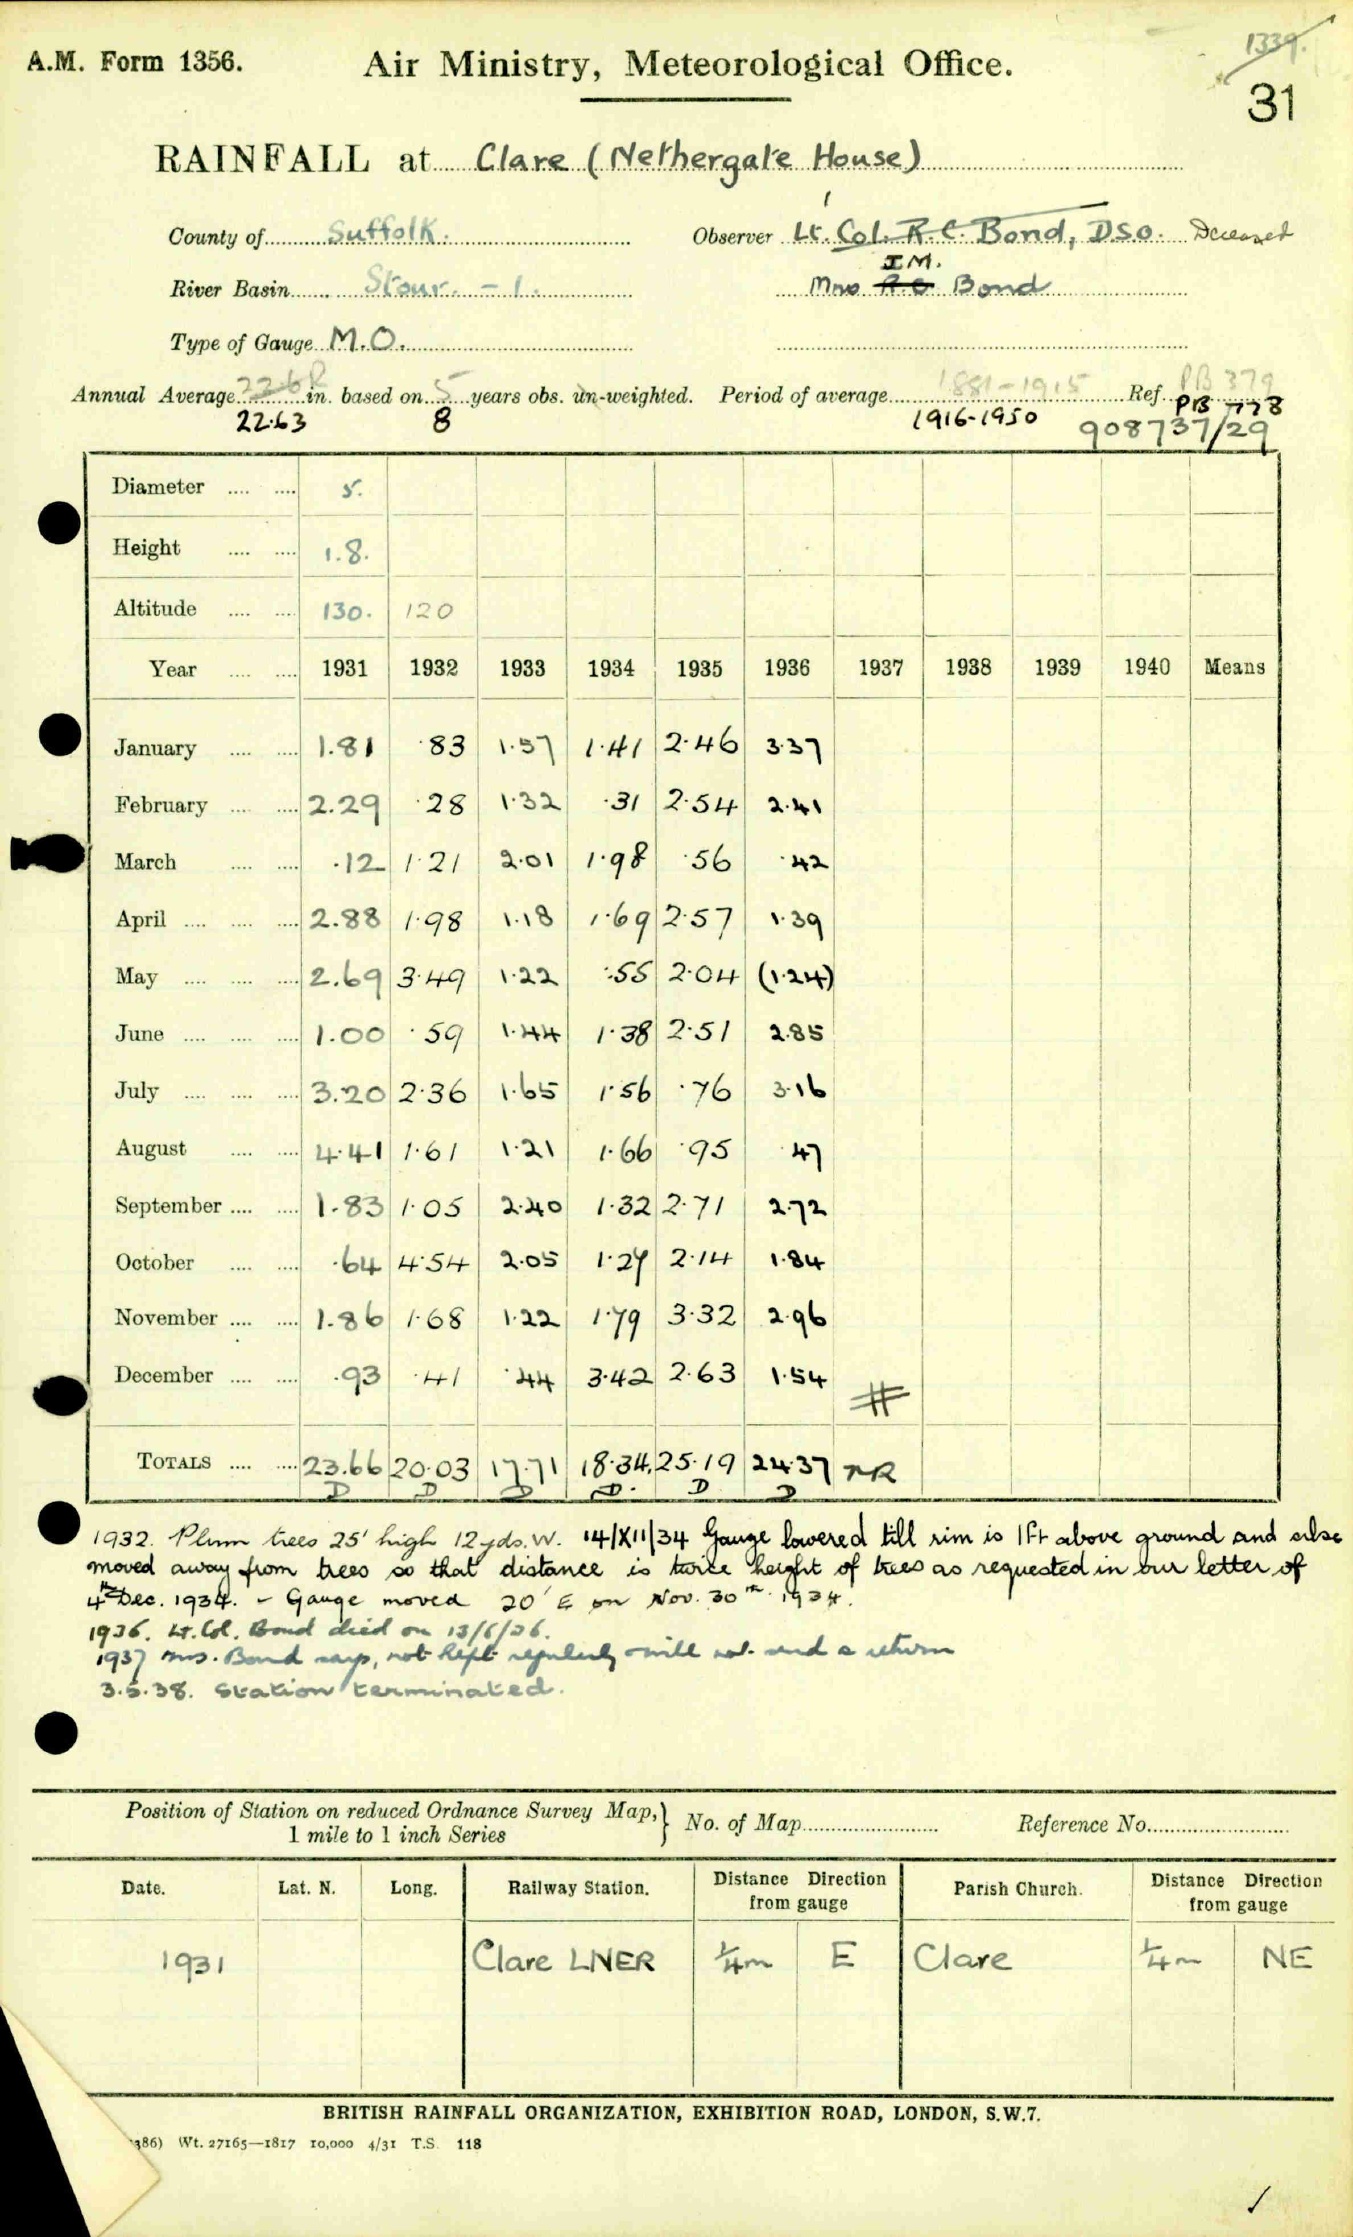 A.M. Form 1356.
Air Ministry, Meteorological Office.
1339.
31
RAINFALL at Clare (Nethergate House)
County of Suffolk. Observer Lt. Col. R.C. Bond, DSO. Deceased
I.M.
River Basin Stour. - 1. Mrs R.C. Bond
Type of Gauge M.O.
Annual Average in. based on 5 years obs. un-weighted. Period of average 1881-1915 Ref. PB 379
22.63 8 1916-1950 PB 778
908737/29
Diameter .... .... 5.
Height .... .... 1.8.
Altitude .... .... 130. 120
Year .... .... 1931 1932 1933 1934 1935 1936 1937 1938 1939 1940 Means
January .... .... 1.81 .83 1.57 1.41 2.46 3.37
February .... .... 2.29 .28 1.32 .31 2.54 2.41
March .... .... .12 1.21 2.01 1.98 .56 .42
April .... .... .... 2.88 1.98 1.18 1.69 2.57 1.39
May .... .... .... 2.69 3.49 1.22 .55 2.04 (1.24)
June .... .... .... 1.00 .59 1.44 1.38 2.51 2.85
July .... .... .... 3.20 2.36 1.65 1.56 .76 3.16
August .... .... 4.41 1.61 1.21 1.66 .95 .47
September .... .... 1.83 1.05 2.40 1.32 2.71 2.72
October .... .... .64 4.54 2.05 1.27 2.14 1.84
November .... .... 1.86 1.68 1.22 1.79 3.32 2.96
December .... .... .93 .41 .44 3.42 2.63 1.54 #
TOTALS .... .... 23.66 20.03 17.71 18.34 25.19 24.37 NR
D D D D. D D
1932. Plum trees 25' high 12 yds. W. 14/XII/34 Gauge lowered till rim is 1ft above ground and also
moved away from trees so that distance is twice height of trees as requested in our letter of
4th Dec. 1934. - Gauge moved 20' E on Nov. 30th 1934.
1936. Lt. Col. Bond died on 13/6/36.
1937 Mrs. Bond says, not kept regularly will not send a return
3.5.38. Station terminated.
Position of Station on reduced Ordnance Survey Map,} No. of Map Reference No.
1 mile to 1 inch Series
Date. Lat. N. Long. Railway Station. Distance Direction from gauge Parish Church. Distance Direction from gauge
1931 Clare LNER ¼m E Clare ¼m NE
BRITISH RAINFALL ORGANIZATION, EXHIBITION ROAD, LONDON, S.W.7.
386) Wt. 27165—1817 10,000 4/31 T.S. 118